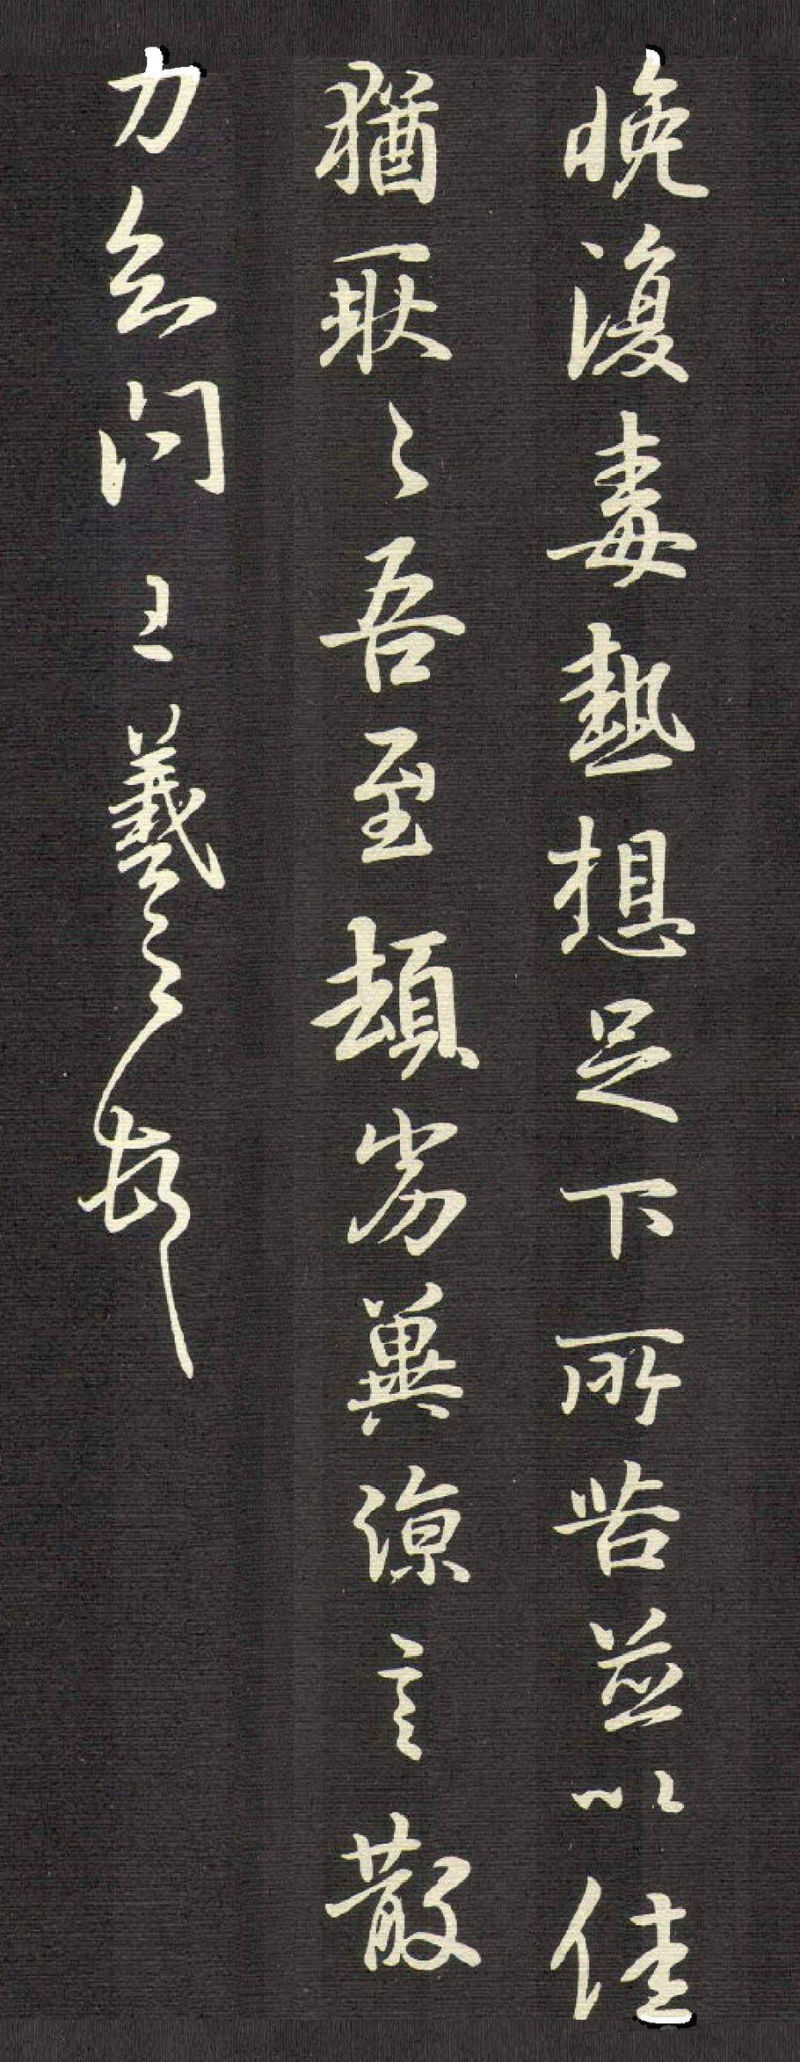 晚復毒熱想足下所苦並以佳
猶耿〻吾至頓劣冀涼言散
力知問王羲之頓